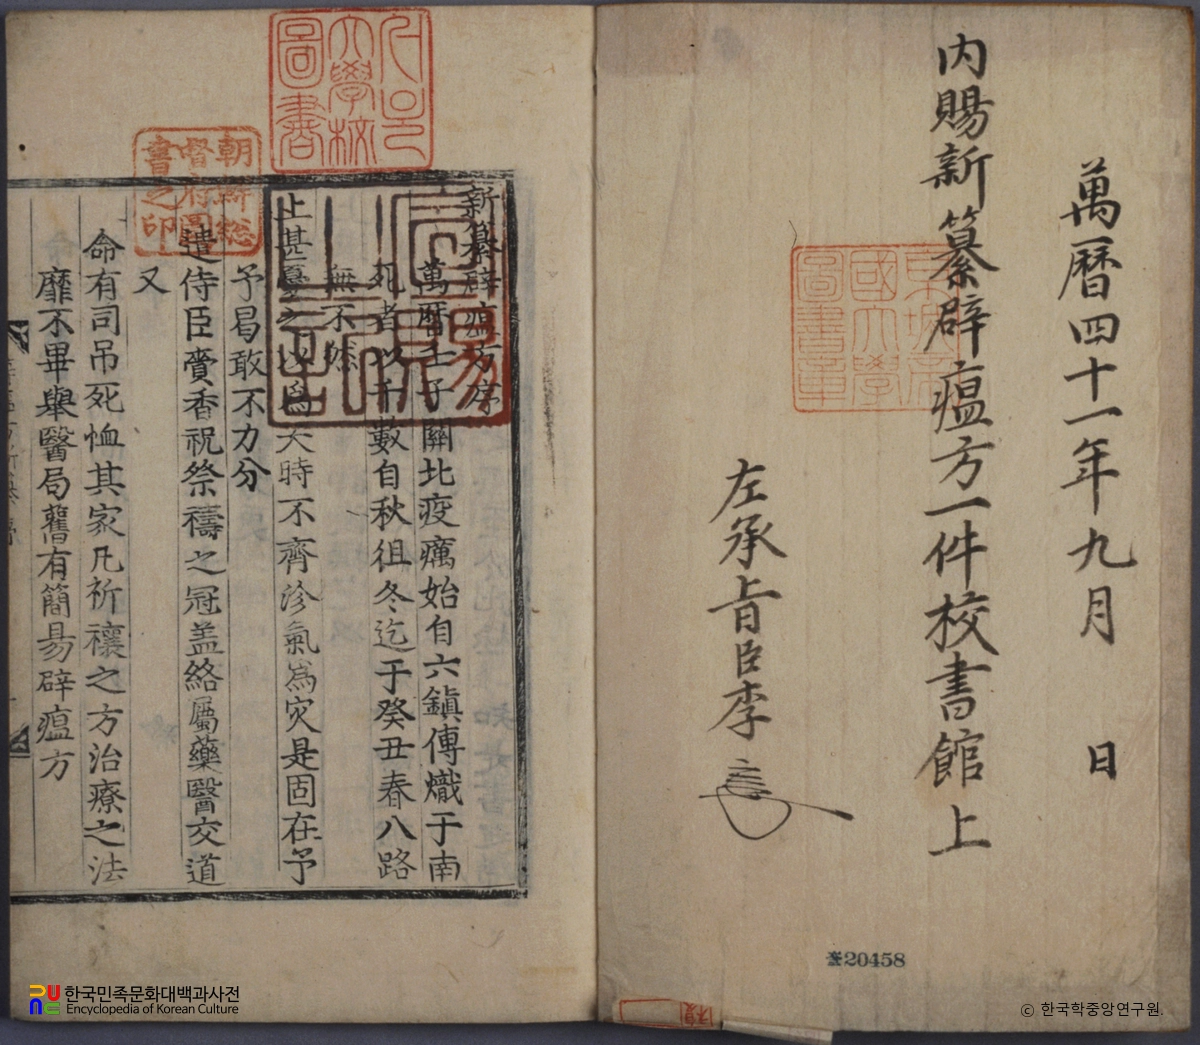 萬曆四十一年九月 日
內賜新纂辟瘟方一件校書館上
左承旨臣李
京城帝國大學圖書章
20458
新纂辟瘟方序
萬曆壬子關北疫癘始自六鎭傳熾于南
死者以千數自秋徂冬迄于癸丑春八路
無不然
上甚憂之以爲天時不齊沴氣爲灾是固在予
予曷敢不力分
遣侍臣賷香祝祭禱之冠盖絡屬藥醫交道
又
命有司吊死恤其家凡祈禳之方治療之法
靡不畢擧醫局舊有簡易辟瘟方
宣賜之記
大學校圖書
朝鮮總督府圖書之印
한국민족문화대백과사전
Encyclopedia of Korean Culture
ⓒ 한국학중앙연구원.